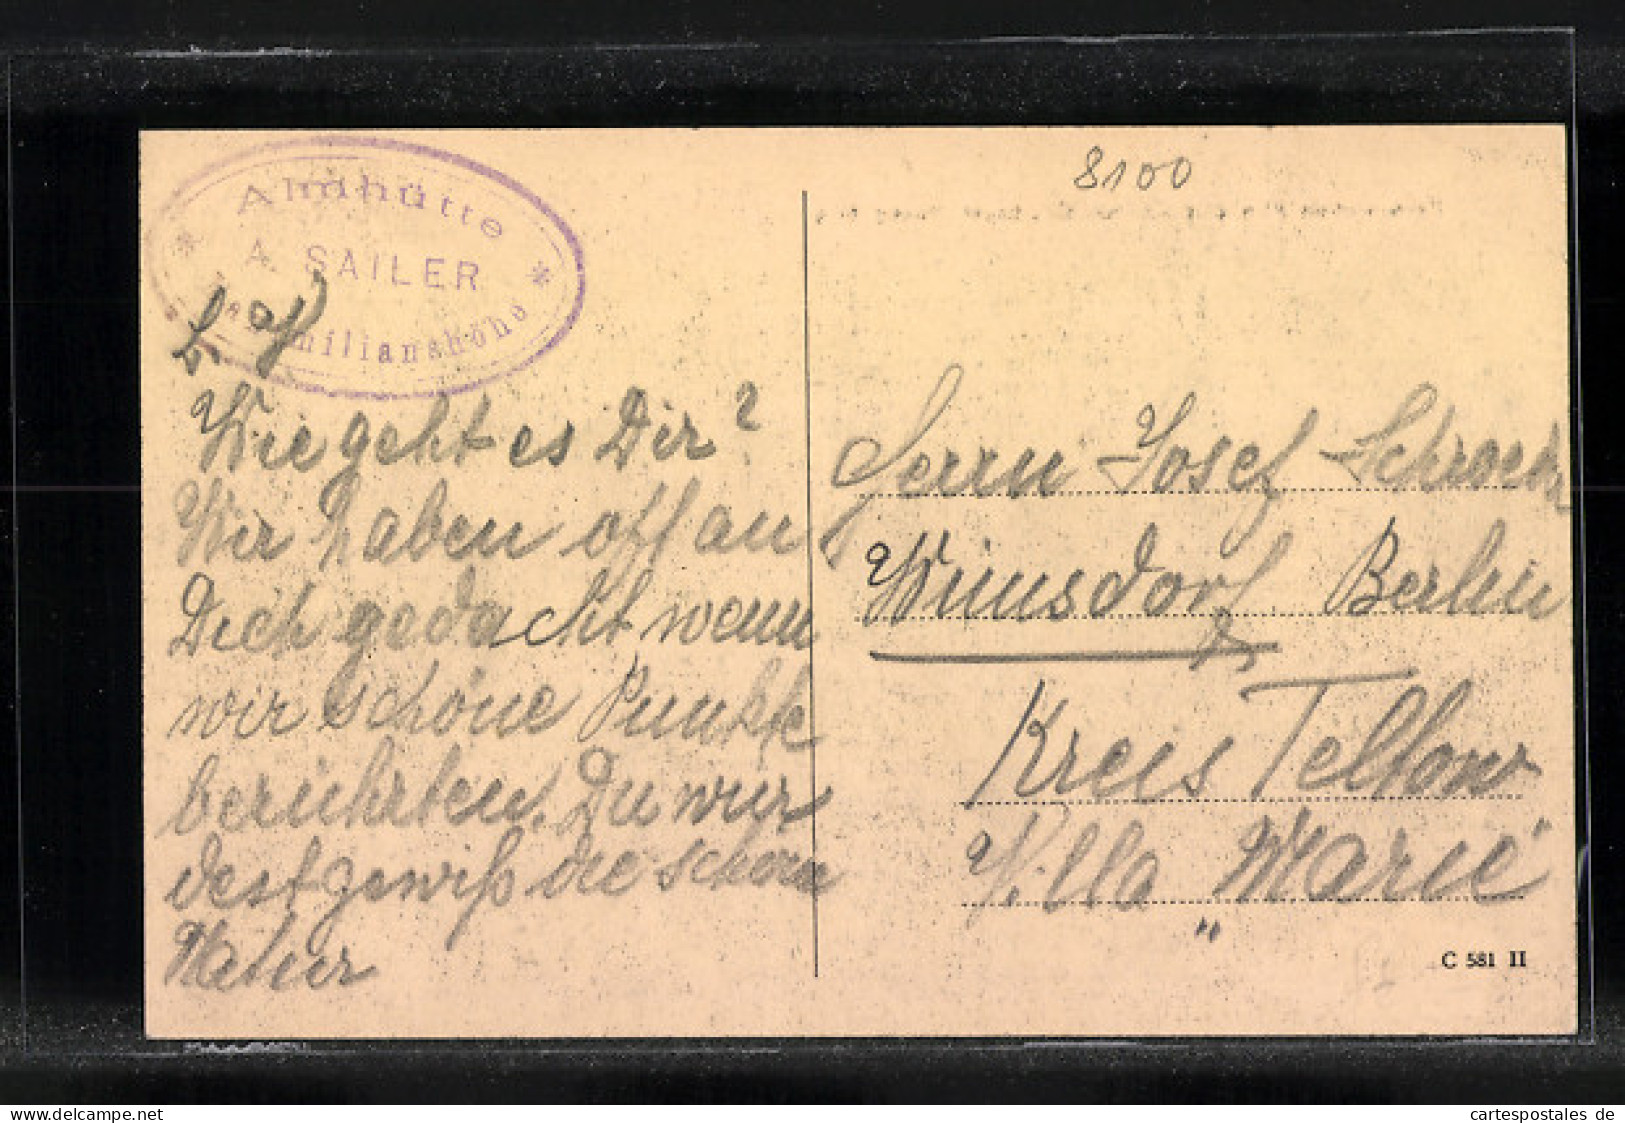 Almhütte
A. SAILER
milianshöhe
Wie geht es Dir?
Wir haben oft an
Dich gedacht wenn
wir schöne Punkte
berührten. Du wür
dest gewiß die schöne
Natur
8100
Herrn Josef Schroek
Wünsdorf Berlin
Kreis Teltow
Villa „Marie"
"
C 581 II
cartespostales de